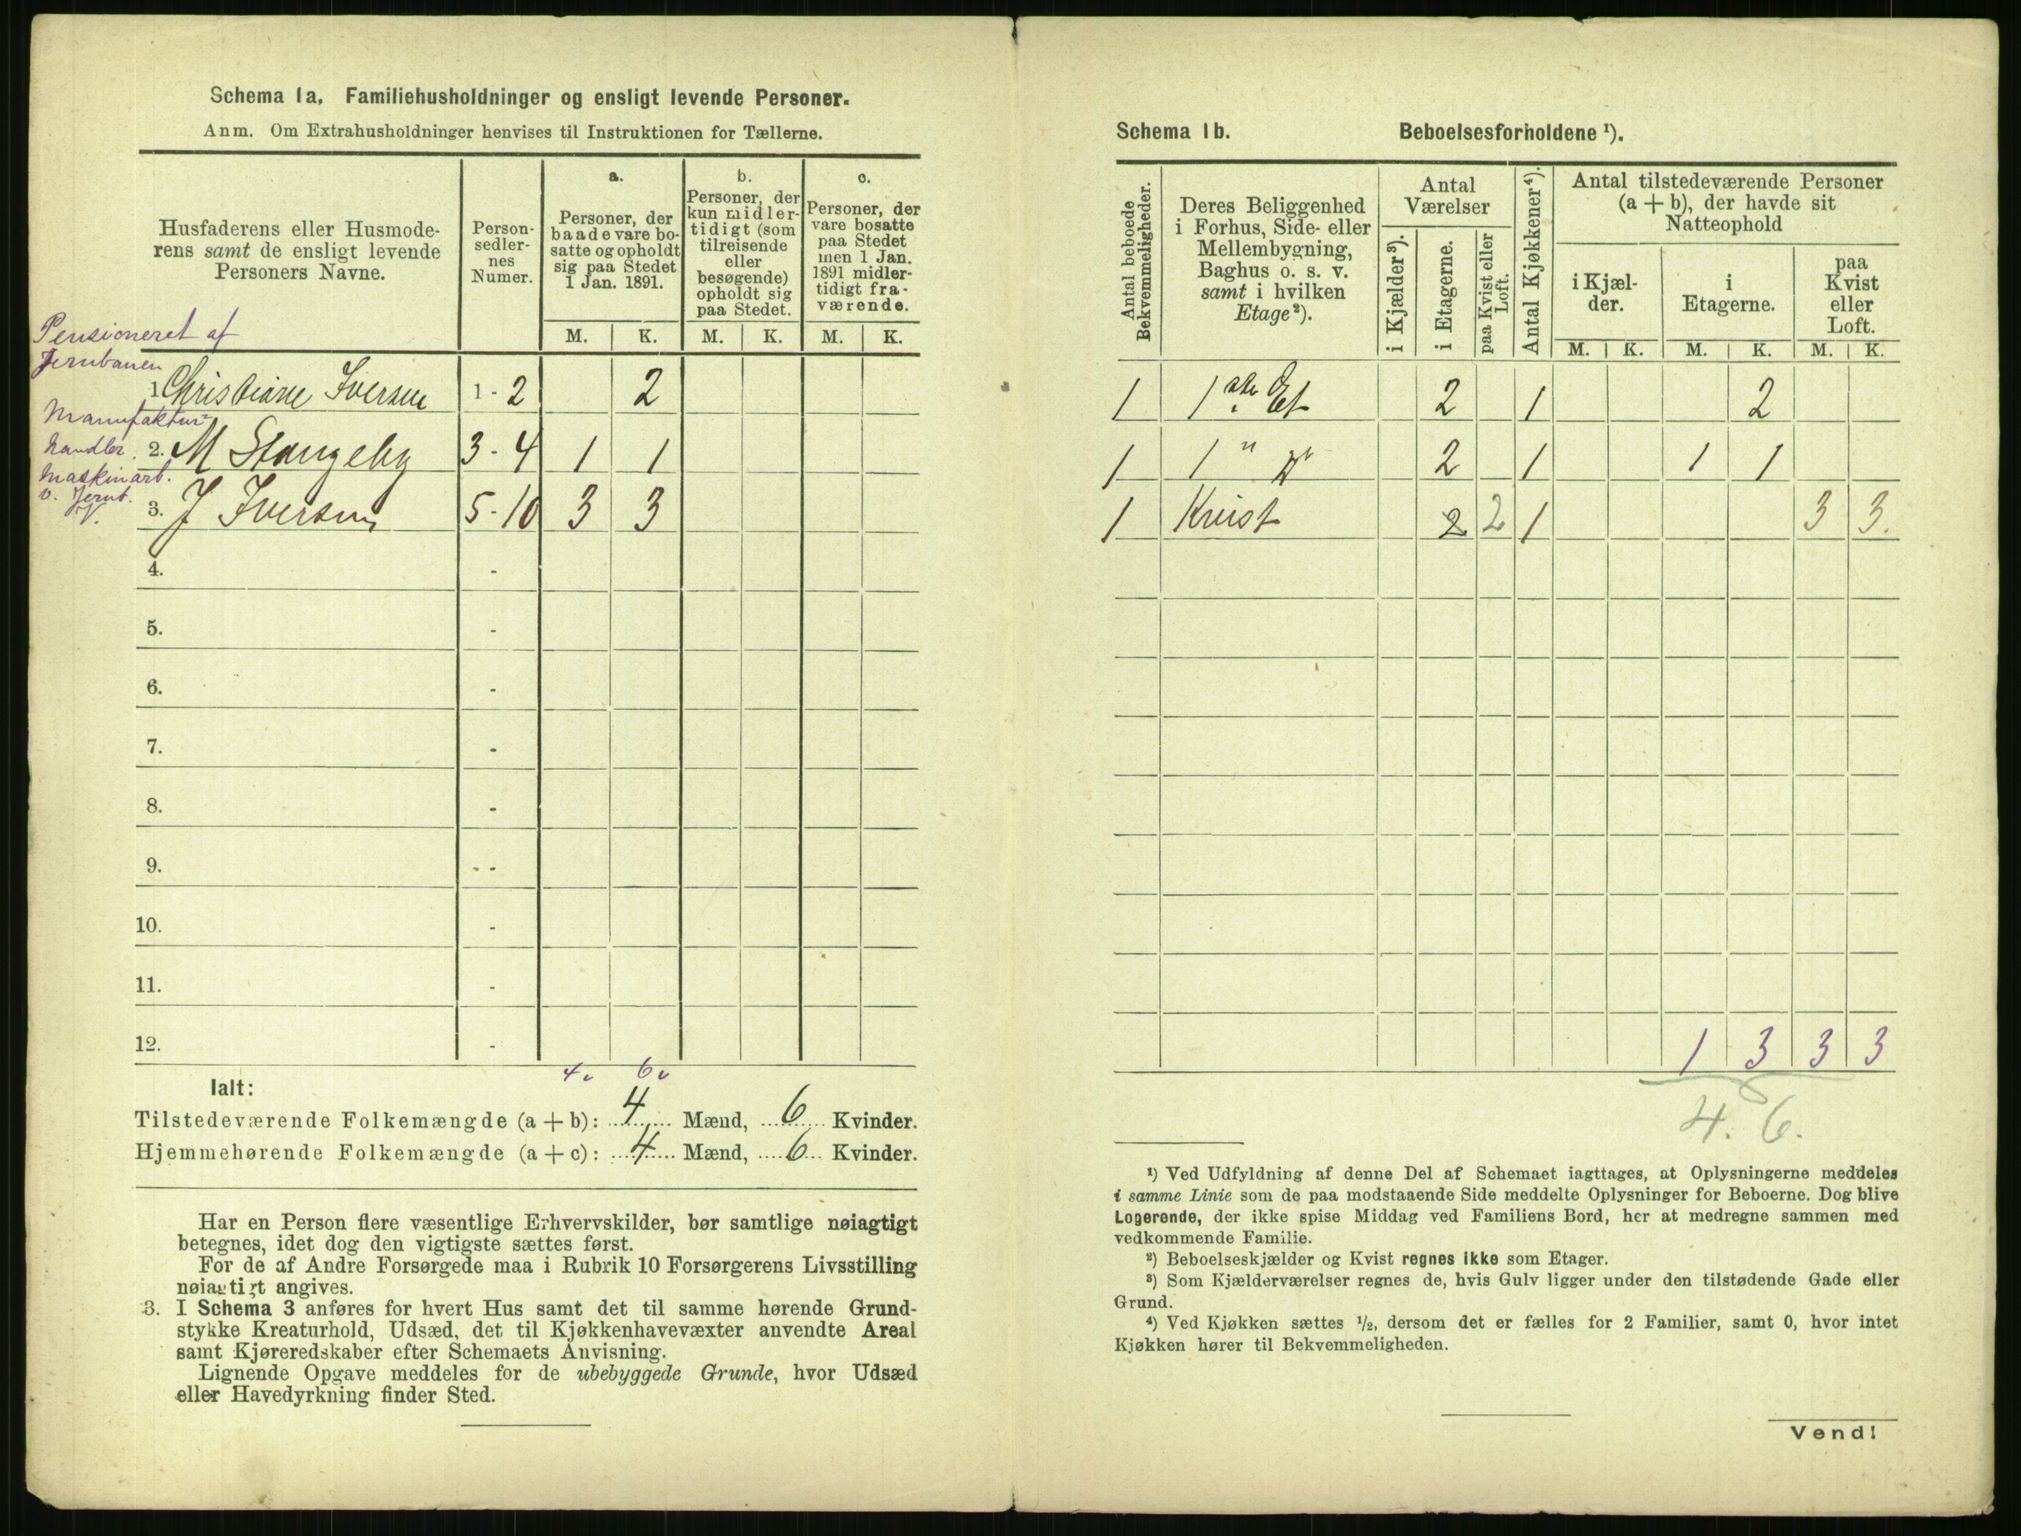 Schema 1a. Familiehusholdninger og ensligt levende Personer.
Anm. Om Extrahusholdninger henvises til Instruktionen for Tællerne.
Husfaderens eller Husmode-
rens samt de ensligt levende
Personers Navne.
Person-
sedler-
nes
Numer.
a.
Personer, der
baade vare bo-
satte og opholdt
sig paa Stedet
1 Jan. 1891.
b.
Personer, der
kun midler-
tidigt (som
tilreisende
eller
besøgende)
opholdt sig
paa Stedet.
c.
Personer, der
vare bosatte
paa Stedet
men 1 Jan.
1891 midler-
tidigt fra-
værende.
M. K. M. K. M. K.
Pensioneret af
Jernbanen
1. Christiane Iversen 1 - 2 2
Manufaktur-
handler.
2. M Stangeby 3 - 4 1 1
Maskinarb.
v. Jernb.
V.
3. J Iversen 5 - 10 3 3
4. -
5. -
6. -
7. -
8. -
9. - -
10. -
11. -
12. -
4 6
Ialt:
Tilstedeværende Folkemængde (a + b): 4 Mænd, 6 Kvinder.
Hjemmehørende Folkemængde (a + c): 4 Mænd, 6 Kvinder.
Har en Person flere væsentlige Erhvervskilder, bør samtlige nøiagtigt
betegnes, idet dog den vigtigste sættes først.
For de af Andre Forsørgede maa i Rubrik 10 Forsørgerens Livsstilling
nøiagtigt angives.
3. I Schema 3 anføres for hvert Hus samt det til samme hørende Grund-
stykke Kreaturhold, Udsæd, det til Kjøkkenhavevæxter anvendte Areal
samt Kjøreredskaber efter Schemaets Anvisning.
Lignende Opgave meddeles for de ubebyggede Grunde, hvor Udsæd
eller Havedyrkning finder Sted.
Schema 1b. Beboelsesforholdene ¹).
Antal beboede
Bekvemmeligheder.
Deres Beliggenhed
i Forhus, Side- eller
Mellembygning,
Baghus o. s. v.
samt i hvilken
Etage²).
Antal
Værelser
i Kjælder³).
i Etagerne.
paa Kvist eller
Loft.
Antal Kjøkkener⁴).
Antal tilstedeværende Personer
(a + b), der havde sit
Natteophold
i Kjæl-
der.
i
Etagerne.
paa
Kvist
eller
Loft.
M. K. M. K. M. K.
1 1ste Et 2 1 2
1 1 " " 2 1 1 1
1 Kvist 2 2 1 3 3.
1 3 3 3
4. 6.
¹) Ved Udfyldning af denne Del af Schemaet iagttages, at Oplysningerne meddeles
i samme Linie som de paa modstaaende Side meddelte Oplysninger for Beboerne. Dog blive
Logerende, der ikke spise Middag ved Familiens Bord, her at medregne sammen med
vedkommende Familie.
²) Beboelseskjælder og Kvist regnes ikke som Etager.
³) Som Kjælderværelser regnes de, hvis Gulv ligger under den tilstødende Gade eller
Grund.
⁴) Ved Kjøkken sættes ½, dersom det er fælles for 2 Familier, samt 0, hvor intet
Kjøkken hører til Bekvemmeligheden.
Vend!